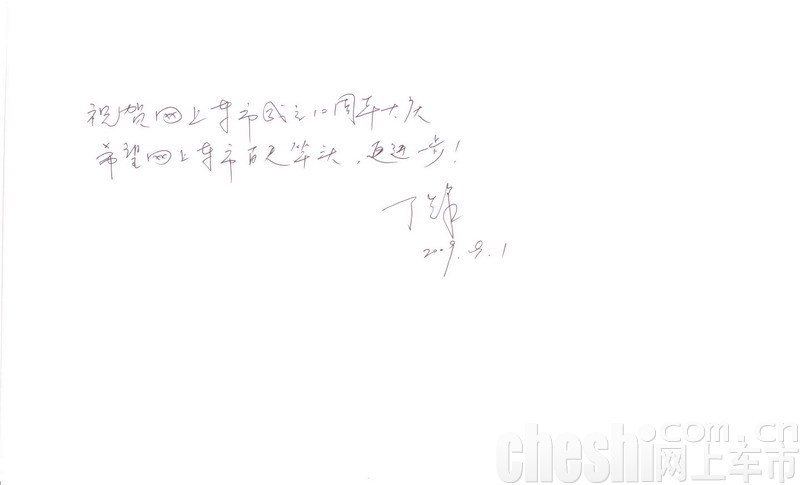 祝贺网上车市成立10周年大庆
希望网上车市百尺竿头,更进一步!
丁锋
2009.9.1
cheshi.com.cn
网上车市